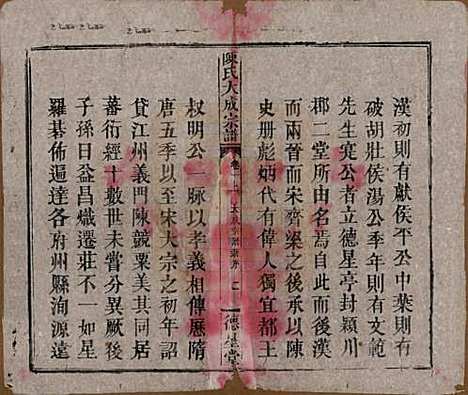 漢初則有獻侯平公中葉則有
破胡壯侯湯公季年則有文範
先生寔公者立德星亭封潁川
郡二堂所由名焉自此而後漢
而兩晉而宋齊梁之後承以陳
史册彪炳代有偉人獨宜都王
陳氏大成宗譜
卷
德星堂
叔明公一脉以孝義相傳歷隋
唐五季以至宋大宗之初年詔
貸江州義門陳競粟美其同居
蕃衍經十數世未嘗分異厥後
子孫日益昌熾遷莊不一如星
羅碁佈遍達各府州縣洵源遠